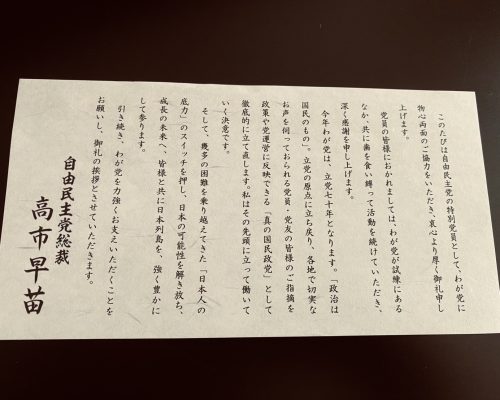 このたびは自由民主党の特別党員として、わが党に
物心両面のご協力をいただき、衷心より厚く御礼申し
上げます。
党員の皆様におかれましては、わが党が試練にある
なか、共に歯を食い縛って活動を続けていただき、
深く感謝を申し上げます。
今年わが党は、立党七十年となります。「政治は
国民のもの」。立党の原点に立ち戻り、各地で切実な
お声を伺っておられる党員・党友の皆様のご指摘を
政策や党運営に反映できる「真の国民政党」として
徹底的に立て直します。私はその先頭に立って働いて
いく決意です。
そして、幾多の困難を乗り越えてきた「日本人の
底力」のスイッチを押し、日本の可能性を解き放ち、
成長の未来へ、皆様と共に日本列島を、強く豊かに
して参ります。
引き続き、わが党を力強くお支えいただくことを
お願いし、御礼の挨拶とさせていただきます。
自由民主党総裁
高市早苗